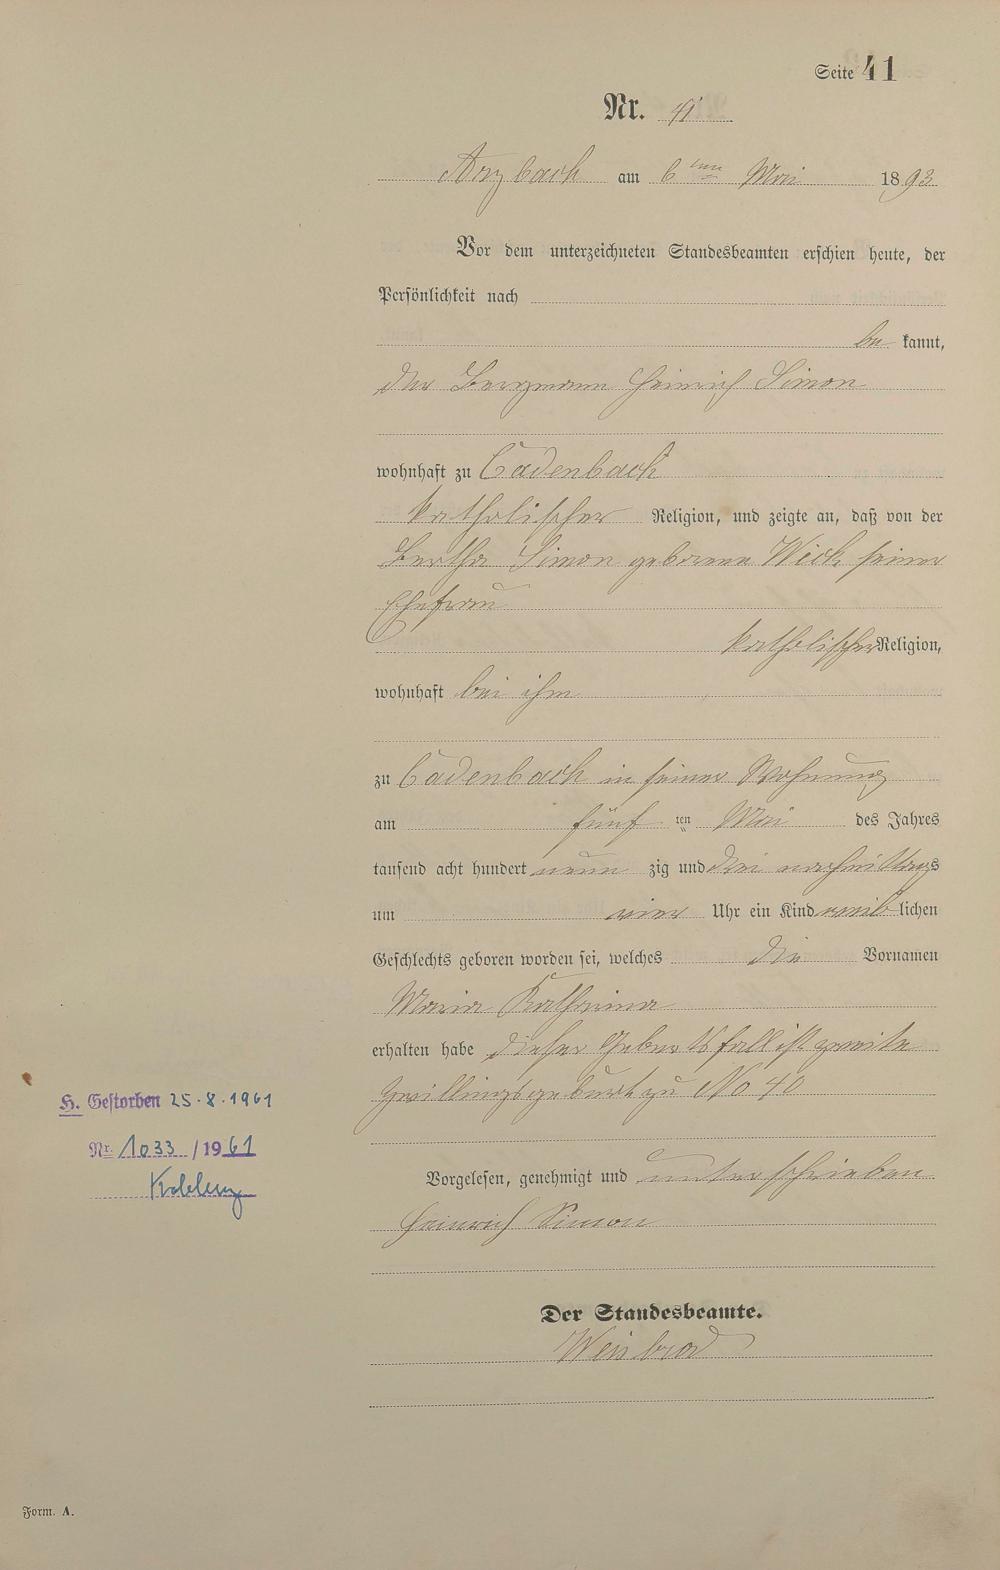 Seite 41
Nr. 41
Arzbach am 6ten Mai 1893
Vor dem unterzeichneten Standesbeamten erschien heute, der
Persönlichkeit nach
be kannt,
der Bergmann Heinrich Simon
wohnhaft zu Cadenbach
katholischer Religion, und zeigte an, daß von der
Bertha Simon geborene Wick seiner
Ehefrau
katholischer Religion,
wohnhaft bei ihm
zu Cadenbach in seiner Wohnung
am fünf ten Mai des Jahres
tausend acht hundert neun zig und drei nachmittags
um vier Uhr ein Kind weib lichen
Geschlechts geboren worden sei, welches die Vornamen
Maria Katharina
erhalten habe dieser Geburtsfall ist zweite
Zwillingsgeburt zu No 40
H. Gestorben 25.8.1961
Nr. 1033 / 1961
Koblenz
Vorgelesen, genehmigt und unterschrieben
Heinrich Simon
Der Standesbeamte.
Weisbrod
Form. A.